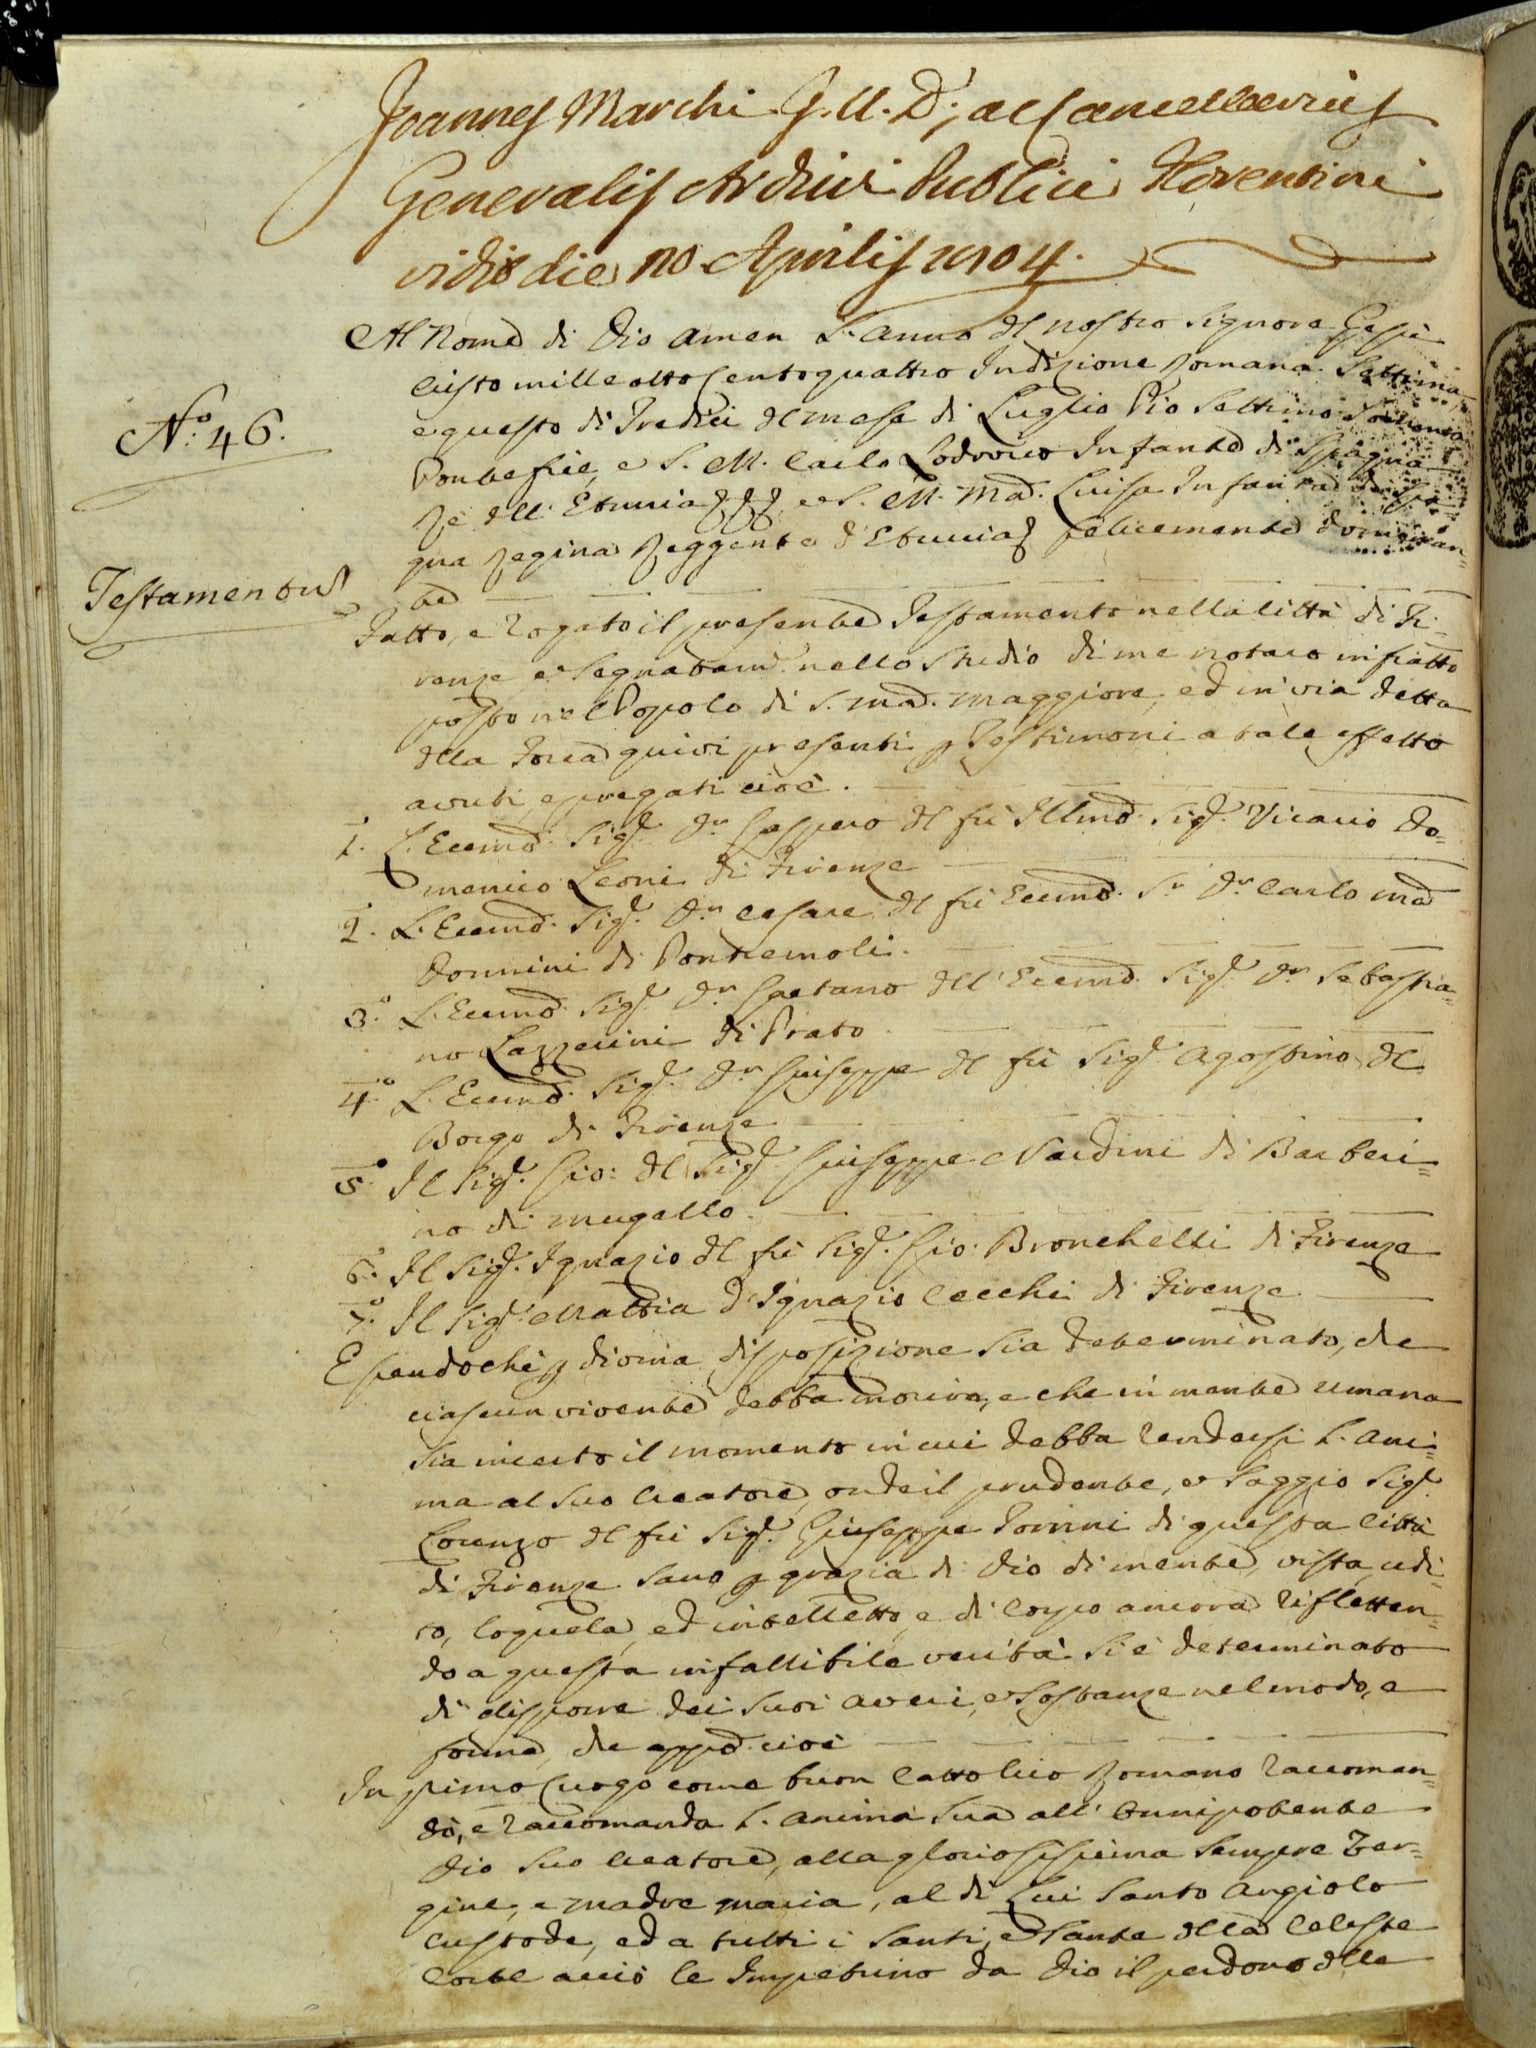 Joannes Marchi J. U. D., ac Cancellarius
Generalis Archivi Publici Florentini
vidit die Aprilis
Al Nome di Dio Amen L'anno del nostro Signore Gesù
Cristo mille ottocentoquattro Indizione Romana Settima,
e questo dì Tredici del mese di Luglio Pio Settimo Sommo
Pontefice, e S. M. Carlo Lodovico Infante di Spagna
Re dell' Etruria e S. M. Ma. Luisa Infanta di Spa
gna Regina Reggente d'Etruria felicemente dominan=
te
Fatto, e rogato il presente Testamento nella Città di Fi=
renze e segnatam. nello Studio di me notaro infratto
posto nel Popolo di S. Ma. Maggiore, ed in via detta
della Forca quivi presenti p Testimoni a tale effetto
avuti, e pregati cioè.
N.o 46.
Testamentus
1. L'Eccmo. Sig.e Dr. Gaspero del fù Illmo. Sig.e Vicario Do=
menico Leoni di Firenze
2. L'Eccmo. Sig.e Dr. Cesare del fù Eccmo. Sr. Dr. Carlo Ma
Donnini di Pontremoli.
3.o L'Eccmo. Sig.e Dr. Gaetano dell' Eccmo. Sig.e Dr. Sebastia=
no Lazzerini di Prato
4.o L'Eccmo. Sig.e Dr. Giuseppe del fù Sig.e Agostino del
Borgo di Firenze
5.o Il Sig.e Gio: del Sig.e Giuseppe Nardini di Barberi=
no di Mugello.
6.o Il Sig.e Ignazio del fù Sig.e Gio: Bronchelli di Firenze
7.o Il Sig.e Mattia d'Ignazio Cecchi di Firenze
Essendochè p divina disposizione sia determinato, che
ciascun vivente debba morire, e che in mente umana
sia incerto il momento in cui debba rendersi l'ani=
ma al suo Creatore, onde il prudente, e saggio Sig.e
Lorenzo del fù Sig.e Giuseppe Tonini di questa Città
di Firenze sano p grazia di Dio di mente, vista, udi=
to, loquela, ed intelletto, e di corpo ancora rifletten=
do a questa infallibile verità si è determinato
di disporre dei suoi averi, e sostanze nel modo, e
forma, che appo. cioè
In primo luogo come buon Cattolico Romano raccoman=
dò, e raccomanda l'anima sua all' Onnipotente
Dio suo Creatore, alla gloriosissima sempre Ver=
gine, e Madre Maria, al di Lui Santo Angiolo
Custode, ed a tutti i Santi, e Sante della Celeste
Corte acciò le Impetrino da Dio il perdono delle